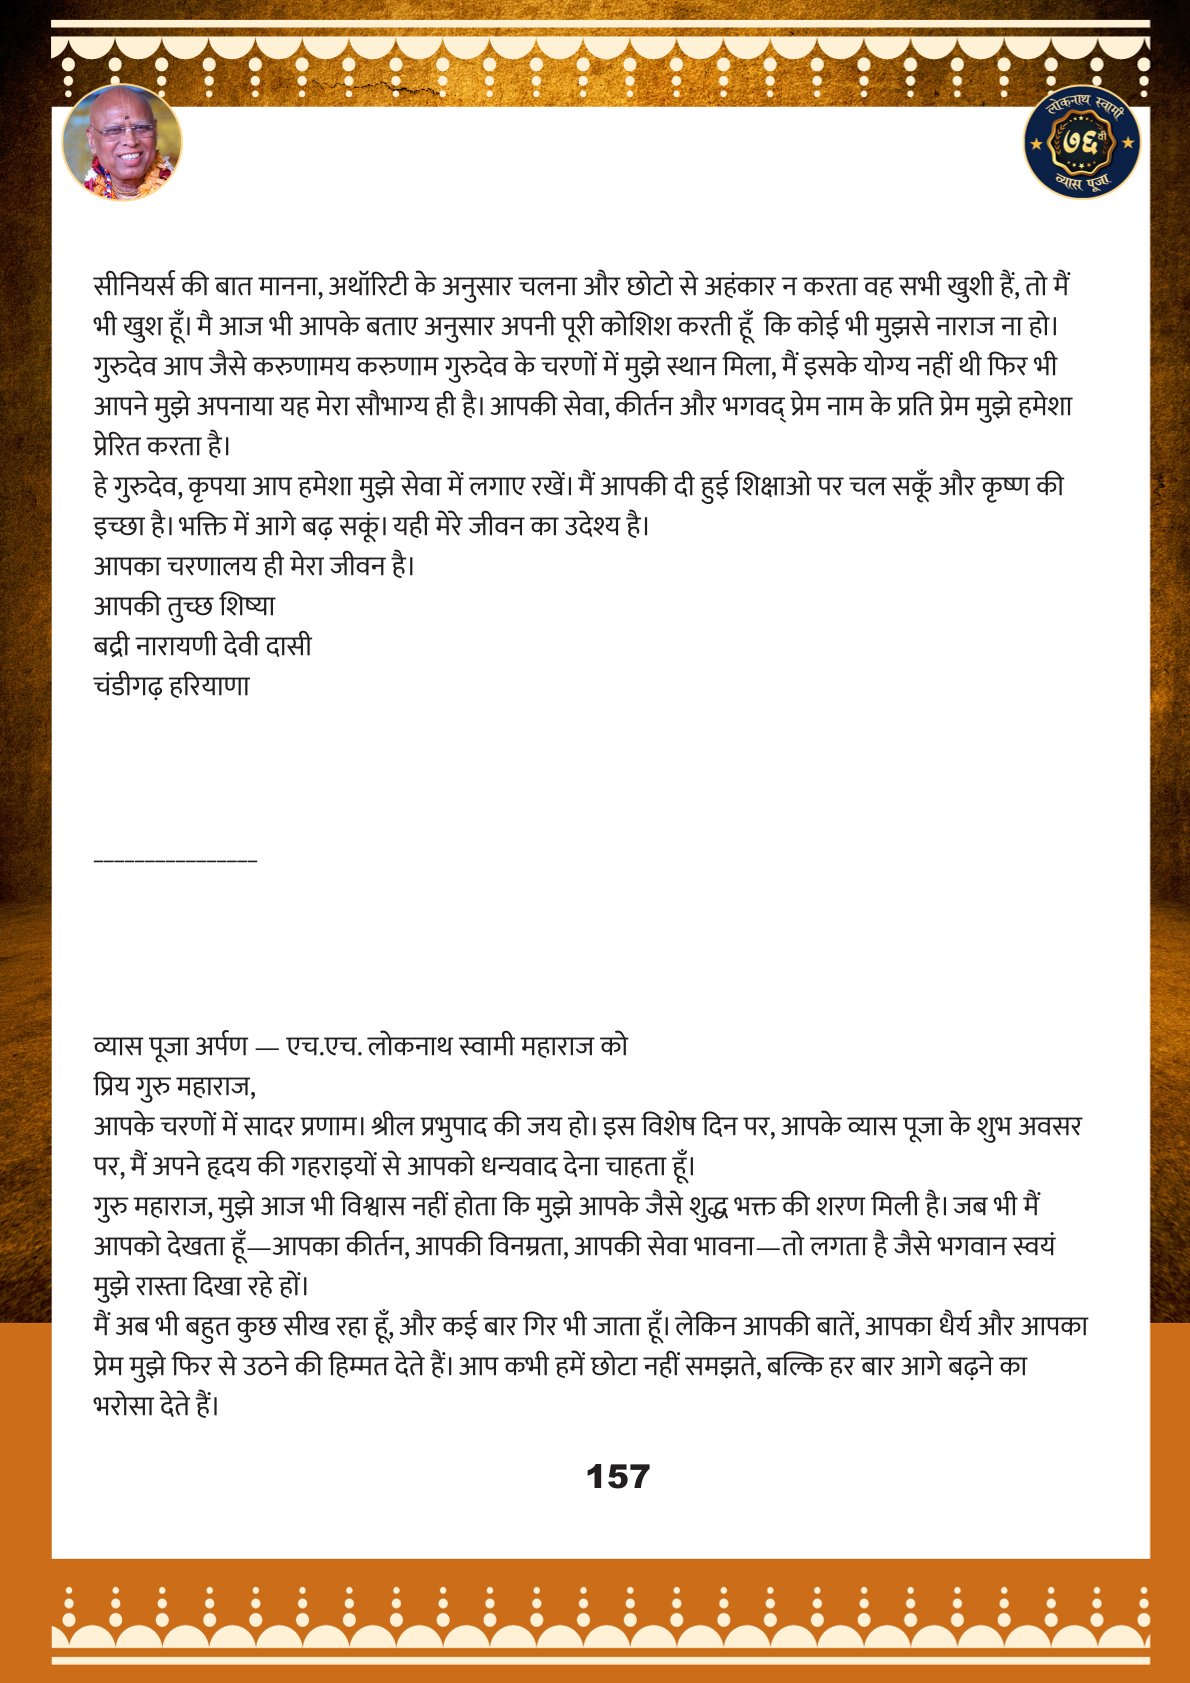 लोकनाथ स्वामी
७६वी
व्यास पूजा
सीनियर्स की बात मानना, अथॉरिटी के अनुसार चलना और छोटो से अहंकार न करता वह सभी खुशी हैं, तो मैं
भी खुश हूँ। मै आज भी आपके बताए अनुसार अपनी पूरी कोशिश करती हूँ कि कोई भी मुझसे नाराज ना हो।
गुरुदेव आप जैसे करुणामय करुणाम गुरुदेव के चरणों में मुझे स्थान मिला, मैं इसके योग्य नहीं थी फिर भी
आपने मुझे अपनाया यह मेरा सौभाग्य ही है। आपकी सेवा, कीर्तन और भगवद् प्रेम नाम के प्रति प्रेम मुझे हमेशा
प्रेरित करता है।
हे गुरुदेव, कृपया आप हमेशा मुझे सेवा में लगाए रखें। मैं आपकी दी हुई शिक्षाओ पर चल सकूँ और कृष्ण की
इच्छा है। भक्ति में आगे बढ़ सकूं। यही मेरे जीवन का उदेश्य है।
आपका चरणालय ही मेरा जीवन है।
आपकी तुच्छ शिष्या
बद्री नारायणी देवी दासी
चंडीगढ़ हरियाणा
________________
व्यास पूजा अर्पण — एच.एच. लोकनाथ स्वामी महाराज को
प्रिय गुरु महाराज,
आपके चरणों में सादर प्रणाम। श्रील प्रभुपाद की जय हो। इस विशेष दिन पर, आपके व्यास पूजा के शुभ अवसर
पर, मैं अपने हृदय की गहराइयों से आपको धन्यवाद देना चाहता हूँ।
गुरु महाराज, मुझे आज भी विश्वास नहीं होता कि मुझे आपके जैसे शुद्ध भक्त की शरण मिली है। जब भी मैं
आपको देखता हूँ—आपका कीर्तन, आपकी विनम्रता, आपकी सेवा भावना—तो लगता है जैसे भगवान स्वयं
मुझे रास्ता दिखा रहे हों।
मैं अब भी बहुत कुछ सीख रहा हूँ, और कई बार गिर भी जाता हूँ। लेकिन आपकी बातें, आपका धैर्य और आपका
प्रेम मुझे फिर से उठने की हिम्मत देते हैं। आप कभी हमें छोटा नहीं समझते, बल्कि हर बार आगे बढ़ने का
भरोसा देते हैं।
157